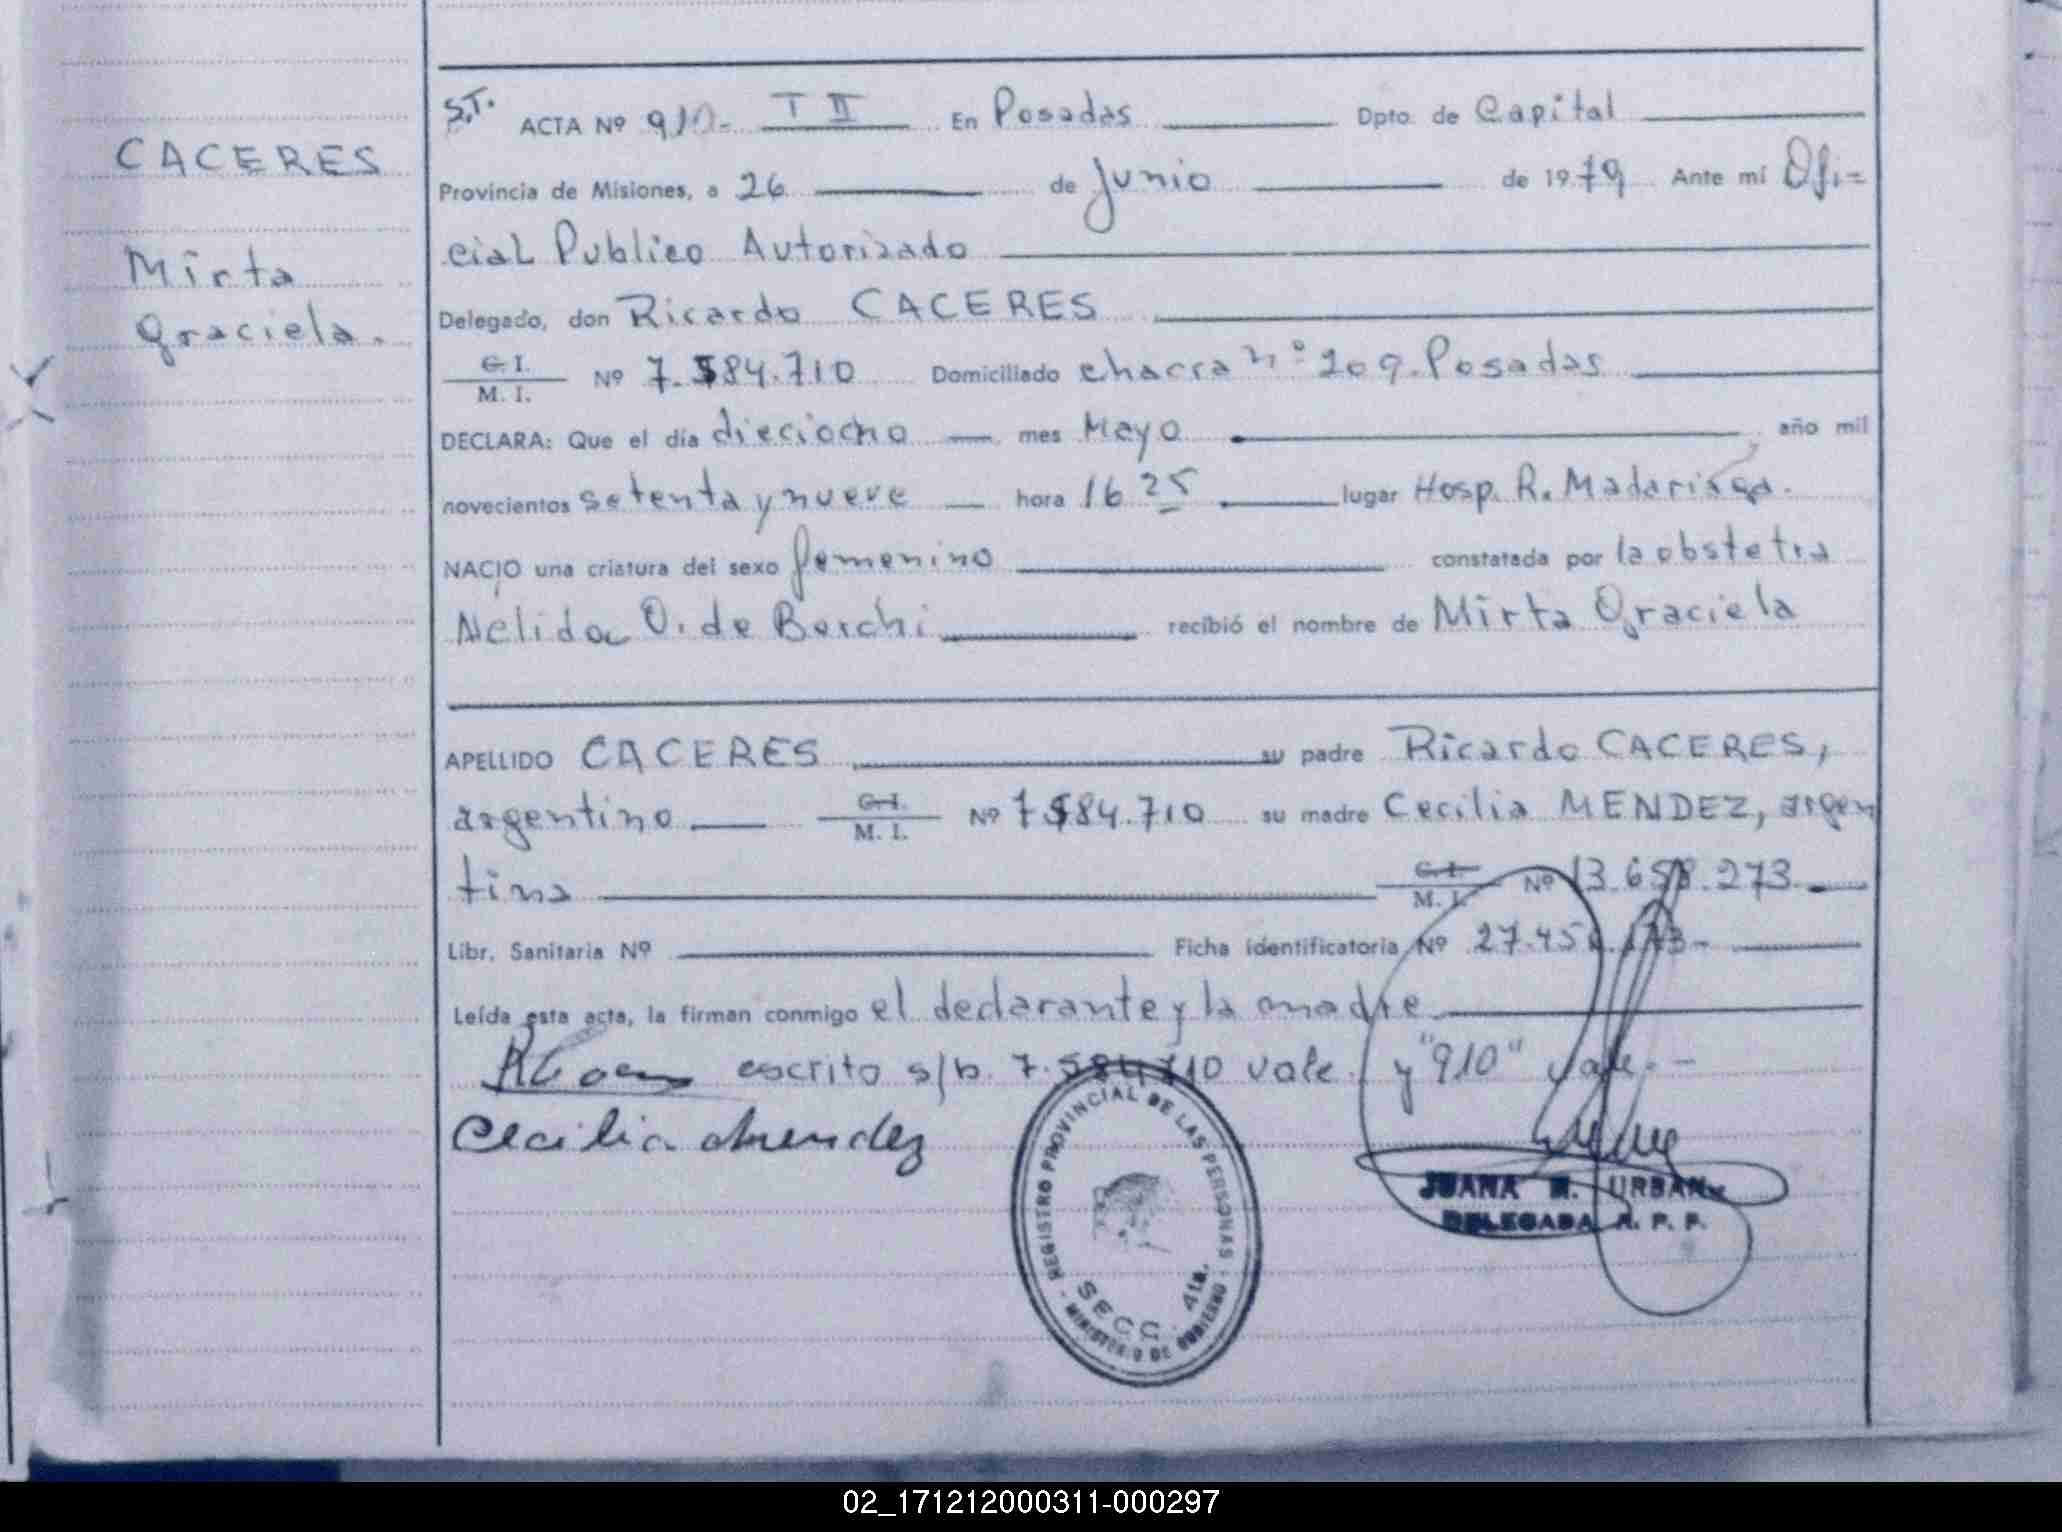 CACERES
Mirta
Graciela.
S.T. ACTA Nº 910- T II En Posadas Dpto. de Capital
Provincia de Misiones, a 26 de Junio de 1979 Ante mí Ofi=
cial Publico Autorizado
Delegado, don Ricardo CACERES
C. I.
M. I. Nº 7.584.710 Domiciliado chacra nº 209. Posadas
DECLARA: Que el día dieciocho mes Mayo año mil
novecientos setenta y nueve hora 16 25 lugar Hosp. R. Madariaga.
NACIO una criatura del sexo femenino constatada por la obstetra
Nelida O. de Borchi recibió el nombre de Mirta Graciela
APELLIDO CACERES su padre Ricardo CACERES,
argentino C. I.
M. I. Nº 7584.710 su madre Cecilia MENDEZ, argen
tina C. I.
M. I. Nº 13.658.273
Libr. Sanitaria Nº Ficha identificatoria Nº 27.45
Leída esta acta, la firman conmigo el declarante y la madre
escrito s/b. 7.584.710 vale. y "910" vale. -
Cecilia Mendez
REGISTRO PROVINCIAL DE LAS PERSONAS
SECC. 4ta.
- MINISTERIO DE GOBIERNO -
JUANA URBAN
DELEGADA R. P. P.
02_171212000311-000297